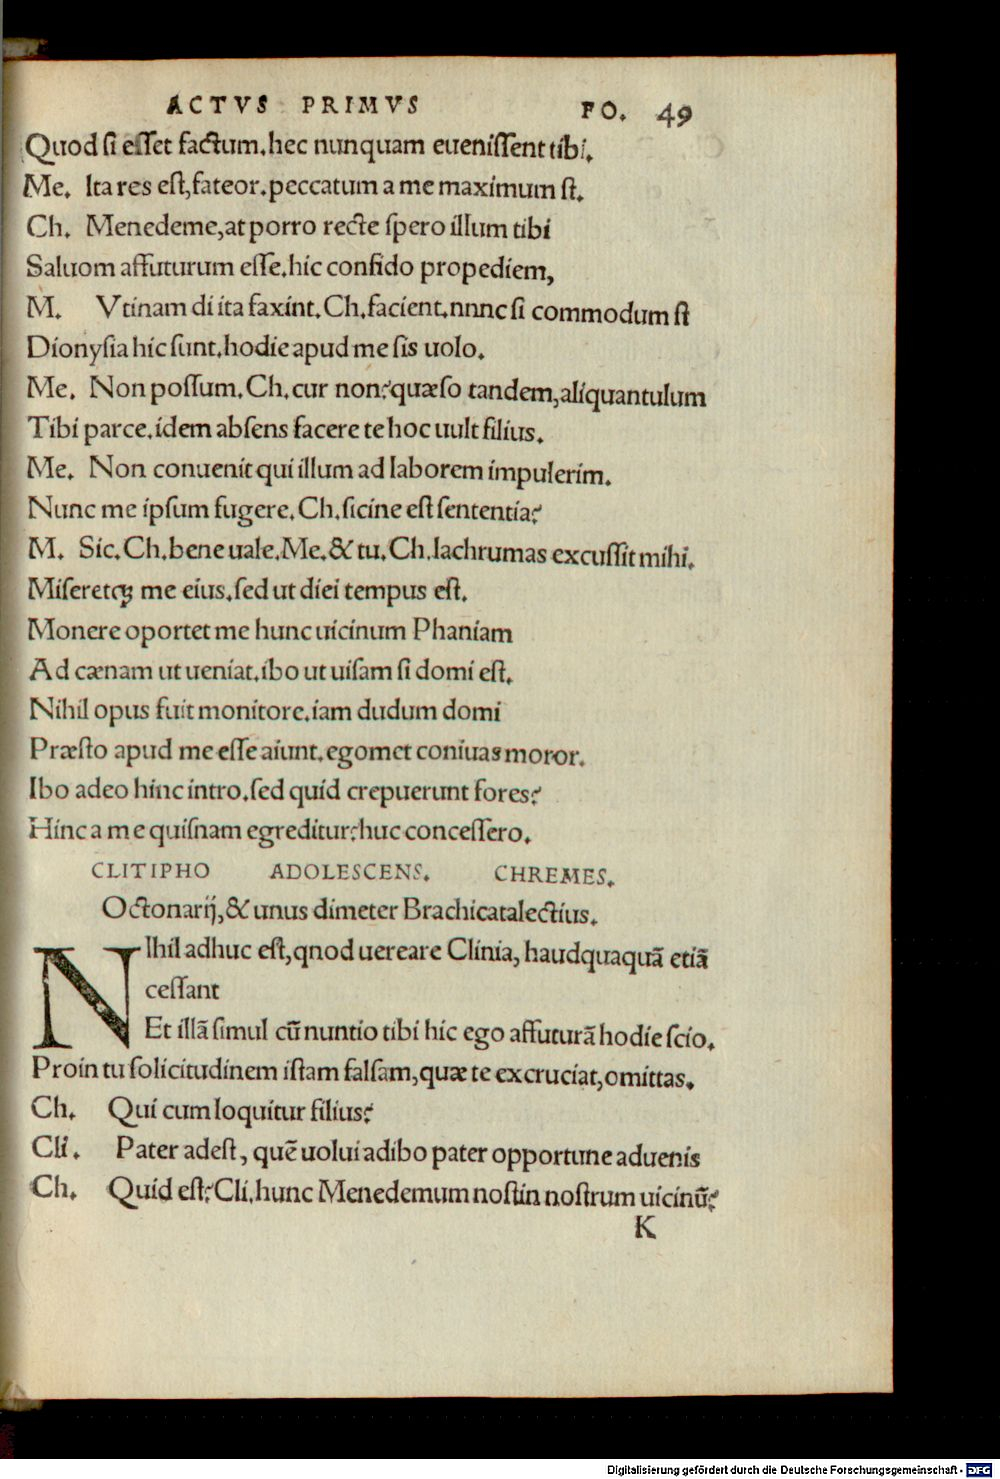 ACTVS PRIMVS FO. 49
Quod ſi eſſet factum.hec nunquam eueniſſent tibi.
Me. Ita res eſt,fateor.peccatum a me maximum ſt.
Ch. Menedeme,at porro recte ſpero illum tibi
Saluom affuturum eſſe.hic confido propediem,
M. Vtinam di ita faxint.Ch.facient.nnnc ſi commodum ſt
Dionyſia hic ſunt.hodie apud me ſis uolo.
Me. Non poſſum.Ch.cur non?quæſo tandem,aliquantulum
Tibi parce.idem abſens facere te hoc uult filius.
Me. Non conuenit qui illum ad laborem impulerim.
Nunc me ipſum fugere.Ch.ſicine eſt ſententia?
M. Sic.Ch.bene uale.Me.& tu.Ch.lachrumas excuſſit mihi.
Miſeretqꝫ me eius.ſed ut diei tempus eſt.
Monere oportet me hunc uicinum Phaniam
Ad cænam ut ueniat.ibo ut uiſam ſi domi eſt.
Nihil opus fuit monitore.iam dudum domi
Præſto apud me eſſe aiunt.egomet coniuas moror.
Ibo adeo hinc intro.ſed quid crepuerunt fores?
Hinc a me quiſnam egreditur?huc conceſſero.
CLITIPHO ADOLESCENS. CHREMES.
Octonarij,& unus dimeter Brachicatalectius.
NIhil adhuc eſt,qnod uereare Clinia, haudquaquā etiā
ceſſant
Et illā ſimul cū nuntio tibi hic ego affuturā hodie ſcio.
Proin tu ſolicitudinem iſtam falſam,quæ te excruciat,omittas.
Ch. Qui cum loquitur filius?
Cli. Pater adeſt, quē uolui adibo pater opportune aduenis
Ch. Quid eſt?Cli.hunc Menedemum noſtin noſtrum uicinū?
K
Digitalisierung gefördert durch die Deutsche Forschungsgemeinschaft - DFG